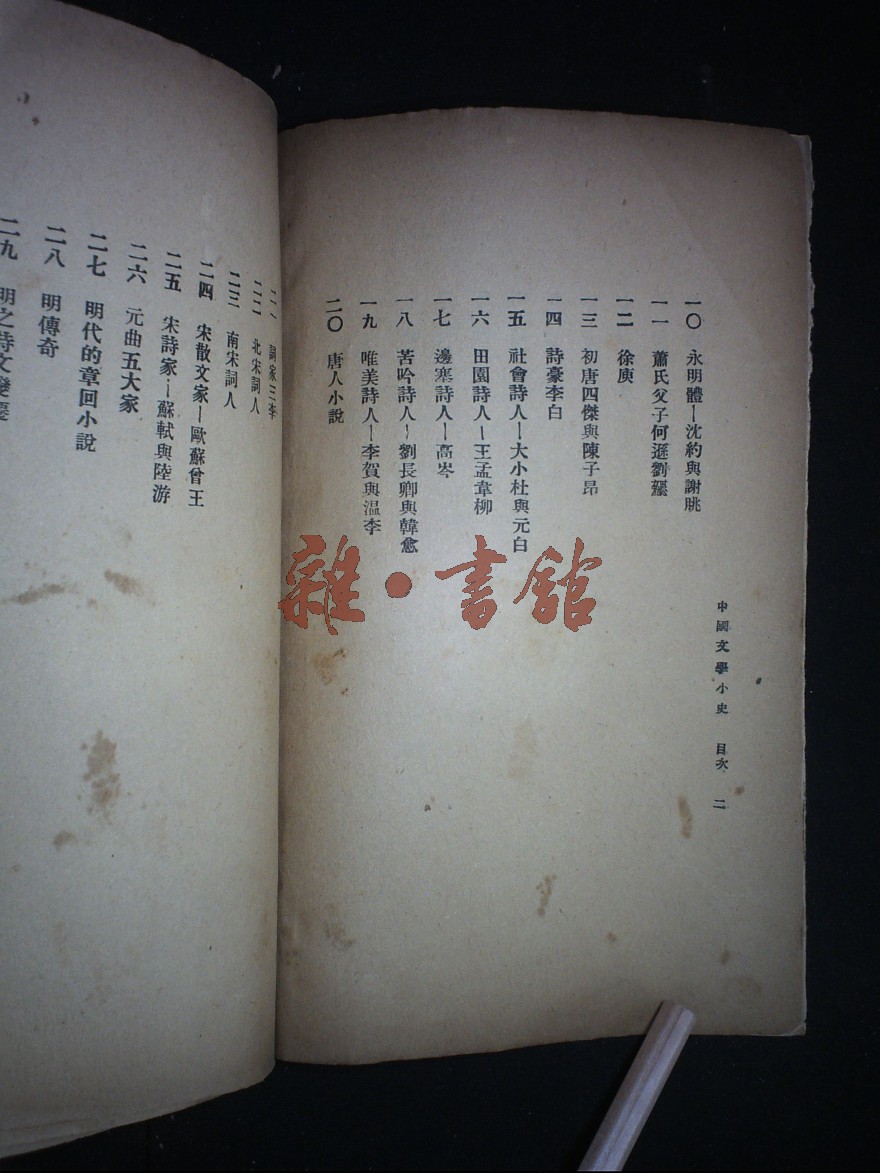 中國文學小史 目次 二
一〇 永明體—沈約與謝朓
一一 蕭氏父子何遜劉
一二 徐庾
一三 初唐四傑與陳子昂
一四 詩豪李白
一五 社會詩人—大小杜與元白
一六 田園詩人—王孟韋柳
一七 邊塞詩人—高岑
一八 苦吟詩人—劉長卿與韓愈
一九 唯美詩人—李賀與溫李
二〇 唐人小說
二一 詞家三李
二二 北宋詞人
二三 南宋詞人
二四 宋散文家—歐蘇曾王
二五 宋詩家—蘇軾與陸游
二六 元曲五大家
二七 明代的章回小說
二八 明傳奇
二九 明之詩文變遷
雜·書館